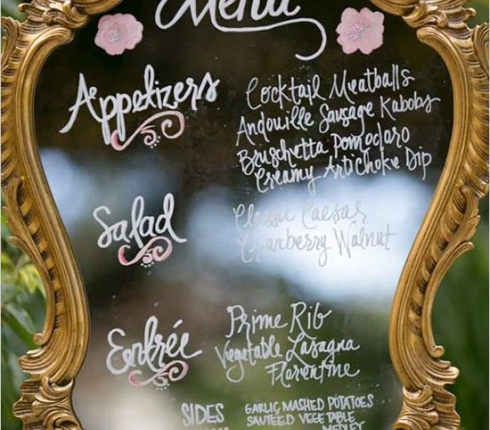 Menu
Appetizers
Cocktail Meatballs
Andouille Sausage Kabobs
Bruschetta Pomodoro
Creamy Artichoke Dip
Salad
Classic Caesar
Cranberry Walnut
Entrée
Prime Rib
Vegetable Lasagna
Florentine
SIDES
GARLIC MASHED POTATOES
SAUTEED VEGETABLE
MEDLEY